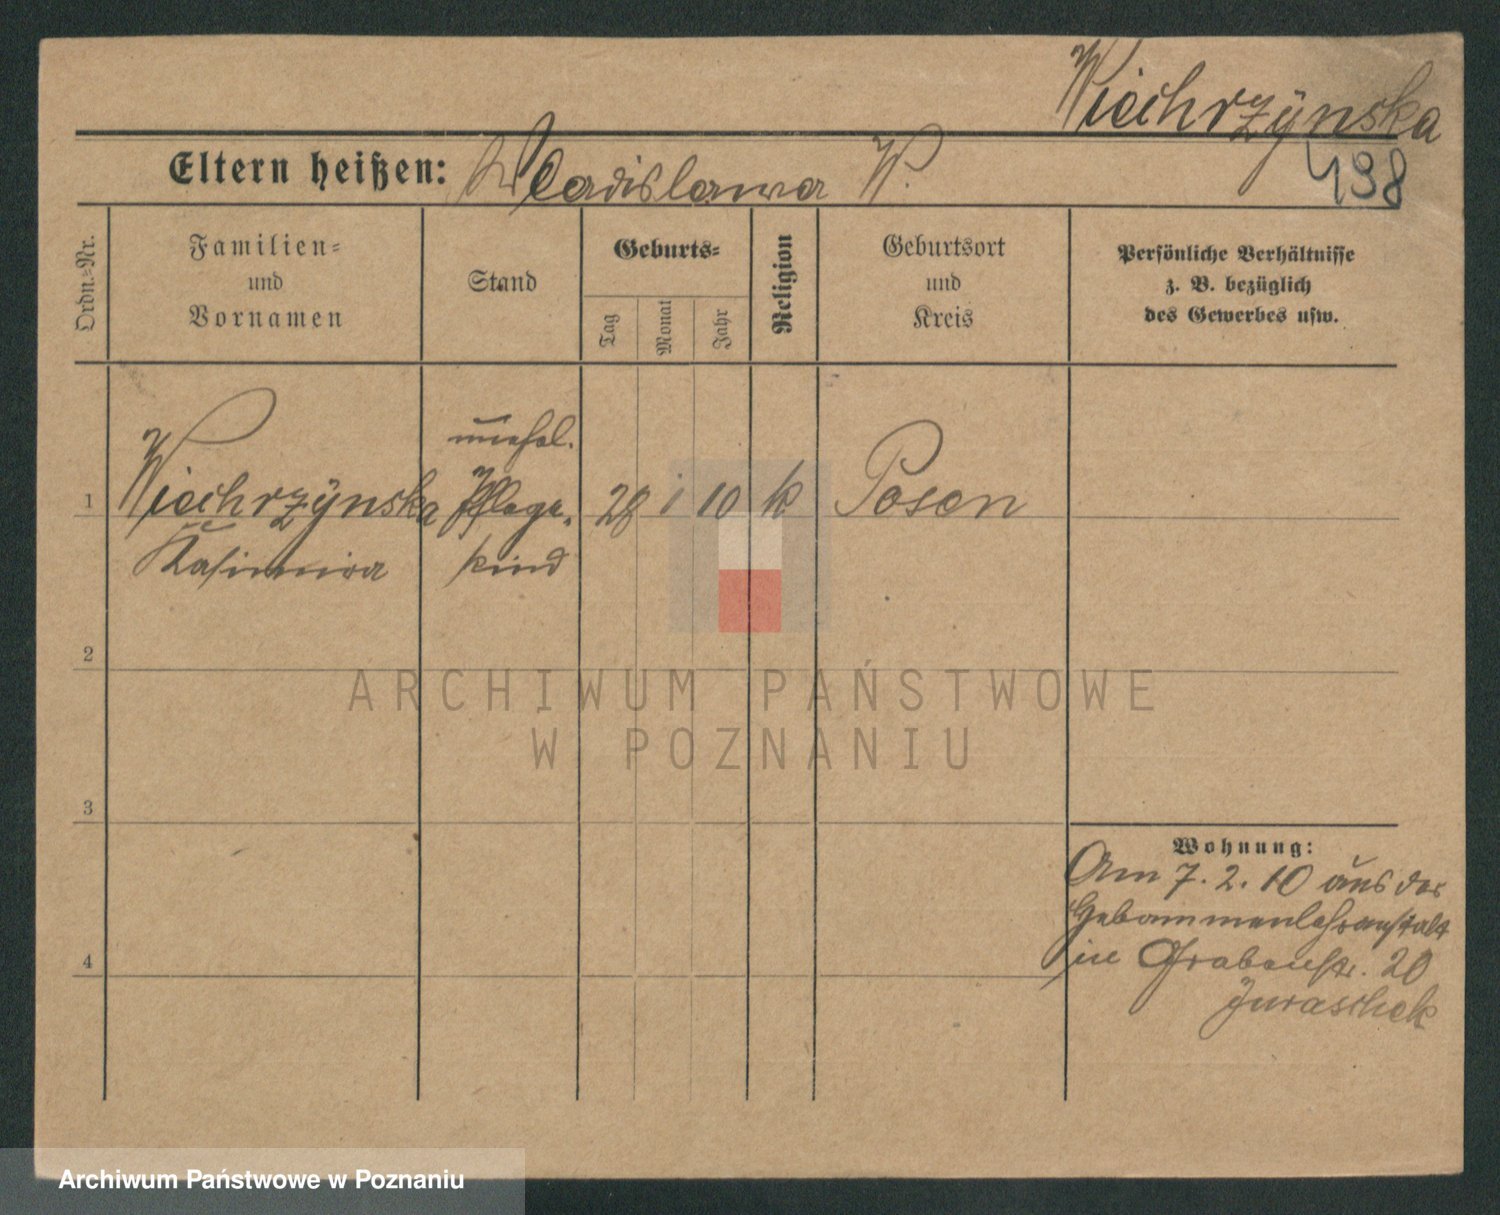 Wiechrzÿnska
498
Eltern heißen: Wladislawa W.
Ordn.-Nr.
Familien-
und
Vornamen
Stand
Geburts-
Tag
Monat
Jahr
Religion
Geburtsort
und
Kreis
Persönliche Verhältnisse
z. B. bezüglich
des Gewerbes usw.
unehel.
1 Wiechrzÿnska Pflege- 28 1 10 k Posen
Kasimira kind
2
3
4
Wohnung:
Am 7. 2. 10 aus der
Hebammenlehranstalt
in Grabenstr. 20
Juraschek
ARCHIWUM PAŃSTWOWE
W POZNANIU
Archiwum Państwowe w Poznaniu